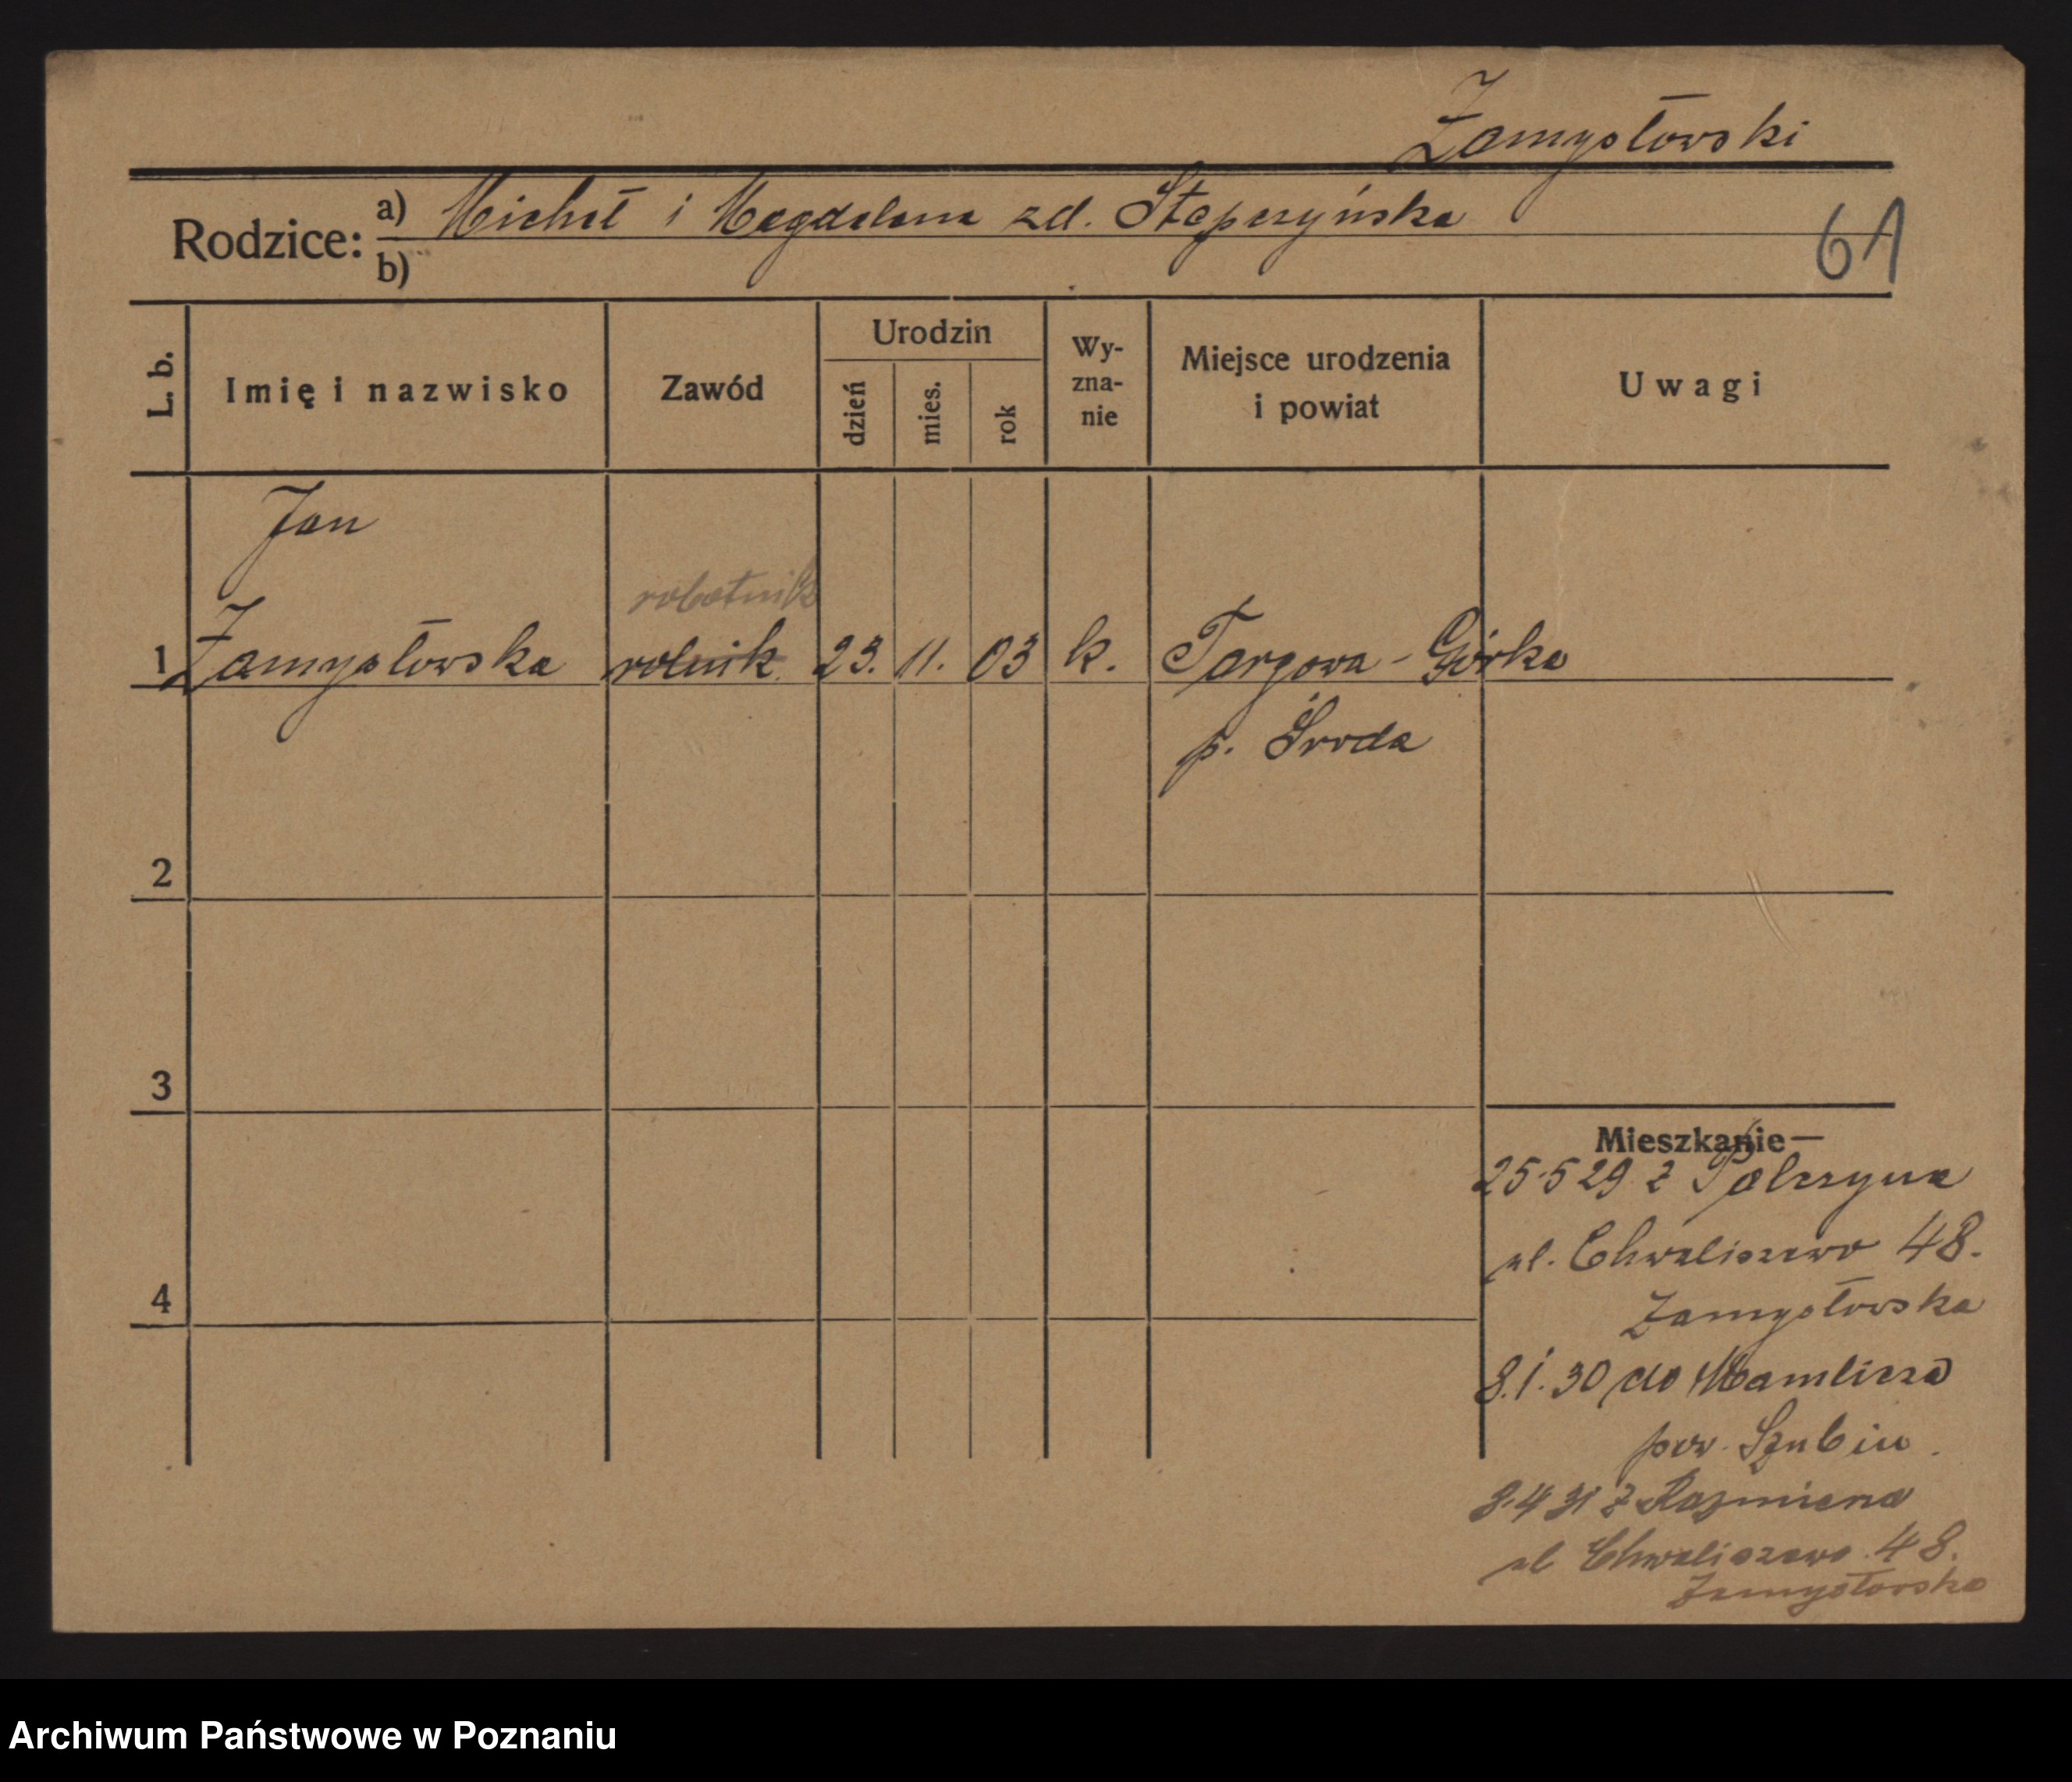 Zamysłowski
Rodzice: a) Michał i Magdalena zd. Stępczyńska
b)
61
L. b.
Imię i nazwisko
Zawód
Urodzin
dzień
mies.
rok
Wy-
zna-
nie
Miejsce urodzenia
i powiat
Uwagi
Jan
robotnik
1 Zamysłowska rolnik 23. 11. 03 k. Targowa-Górka
p. Środa
2
3
4
Mieszkanie—
25·5 29 z Palczyna
ul. Chwaliszewo 48.
Zamysłowska
8.1.30 do Mamlicza
pow. Szubin.
8·4 31 z
ul Chwaliszewo. 48.
Zamysłowska
Archiwum Państwowe w Poznaniu